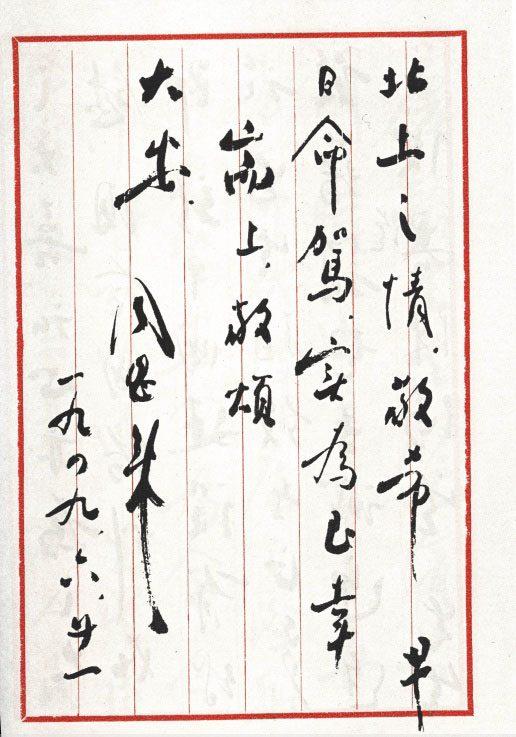 北上之情.敬希 早
日命駕.實為至幸
耑上.敬頌
大安.
周恩来
一九四九.六.廿一